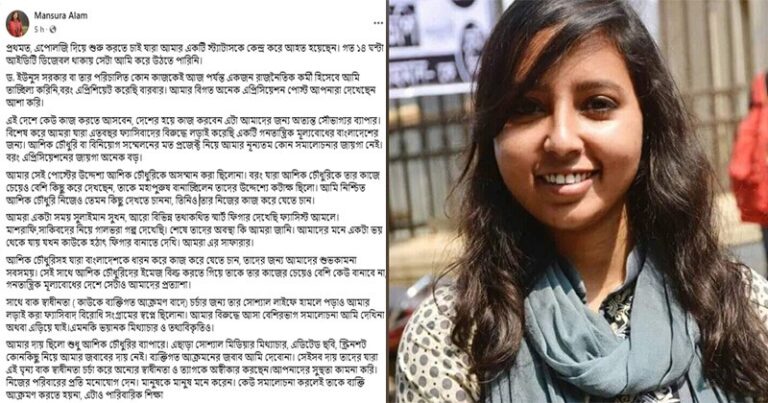 Mansura Alam
5 h
প্রথমত, এপোলজি দিয়ে শুরু করতে চাই যারা আমার একটি স্ট্যাটাসকে কেন্দ্র করে আহত হয়েছেন। গত ১৪ ঘন্টা
আইডিটি ডিজেবল থাকায় সেটা আমি করে উঠতে পারিনি।
ড. ইউনুস সরকার বা তার পরিচালিত কোন কাজকেই আজ পর্যন্ত একজন রাজনৈতিক কর্মী হিসেবে আমি
তাচ্ছিল্য করিনি,বরং এপ্রিশিয়েট করেছি বারবার। আমার বিগত অনেক এপ্রিসিয়েশন পোস্ট আপনারা দেখেছেন
আশা করি।
এই দেশে কেউ কাজ করতে আসবেন, দেশের হয়ে কাজ করবেন এটা আমাদের জন্য অত্যন্ত সৌভাগ্যের ব্যাপার।
বিশেষ করে আমরা যারা এতবছর ফ্যাসিবাদের বিরুদ্ধে লড়াই করেছি একটি গনতান্ত্রিক মূল্যবোধের বাংলাদেশের
জন্য। আশিক চৌধুরি বা বিনিয়োগ সম্মেলনের মত প্রজেক্ট নিয়ে আমার নূন্যতম কোন সমালোচনার জায়গা নেই।
বরং এপ্রিসিয়েশনের জায়গা অনেক বড়।
আমার সেই পোস্টের উদ্দেশ্য আশিক চৌধুরিকে অসম্মান করা ছিলোনা। বরং যারা আশিক চৌধুরিকে তার কাজে
চেয়েও বেশি কিছু করে দেখছেন, তাকে মহাপুরুষ বানাচ্ছিলেন তাদের উদ্দেশ্যে কটাক্ষ ছিলো। আমি নিশ্চিত
আশিক চৌধুরি নিজেও তেমন কিছু দেখতে চাননা, তিনিও তার নিজের কাজ করে যেতে চান।
আমরা একটা সময় সুলাইমান সুখন, আরো বিভিন্ন তথাকথিত স্মার্ট ফিগার দেখেছি ফ্যাসিস্ট আমলে।
মাশরাফি,সাকিবদের নিয়ে গালভরা গল্প দেখেছি। শেষে তাদের অবস্থা কি আমরা জানি। আমাদের মনে একটা ভয়
থেকে যায় যখন কাউকে হঠাৎ ফিগার বানাতে দেখি। আমরা এর সাফারার।
আশিক চৌধুরিসহ যারা বাংলাদেশকে ধারন করে কাজ করে যেতে চান, তাদের জন্য আমাদের শুভকামনা
সবসময়। সেই সাথে আশিক চৌধুরিদের ইমেজ বিল্ড করতে গিয়ে তাকে তার কাজের চেয়েও বেশি কেউ বানাবে না
গনতান্ত্রিক মূল্যবোধের দেশে সেটাও আমাদের প্রত্যাশা।
সাথে বাক স্বাধীনতা ( কাউকে ব্যক্তিগত আক্রমণ বাদে) চর্চার জন্য তার সোশ্যাল লাইফে হামলে পড়াও আমার
লড়াই করা ফ্যাসিবাদ বিরোধি সংগ্রামের স্বপ্নে ছিলোনা। আমার বিরুদ্ধে আসা বেশিরভাগ সমালোচনা আমি দেখিনা
অথবা এড়িয়ে যাই।এমনকি ভয়ানক মিথ্যাচার ও তথ্যবিকৃতিও।
আমার দায় ছিলো শুধু আশিক চৌধুরির ব্যাপারে। এছাড়া সোশ্যাল মিডিয়ার মিথ্যাচার, এডিটেড ছবি, স্ক্রিনশট
কোনকিছু নিয়ে আমার জবাবের দায় নেই। ব্যক্তিগত আক্রমনের জবাব আমি দেবোনা। সেইসব দায় তাদের যারা
এই ঘৃন্য বাক স্বাধীনতা চর্চা করে অন্যের স্বাধীনতা ও ত্যাগকে অস্বীকার করছেন।আপনাদের সুস্থতা কামনা করি।
নিজের পরিবারের প্রতি মনোযোগ দেন। মানুষকে মানুষ মনে করেন। কেউ সমালোচনা করলেই তাকে ব্যক্তি
আক্রমণ করতে হয়না, এটাও পারিবারিক শিক্ষা